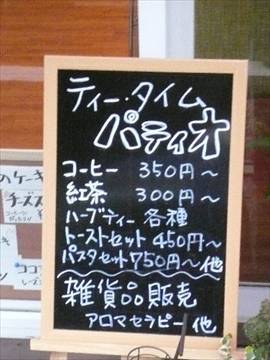 ティー・タイム
パティオ
コーヒー 350円～
紅茶 300円～
ハーブティー 各種
トーストセット 450円～
パスタセット 750円～他
雑貨品販売
アロマセラピー 他
のケーキ
チーズ
ココ